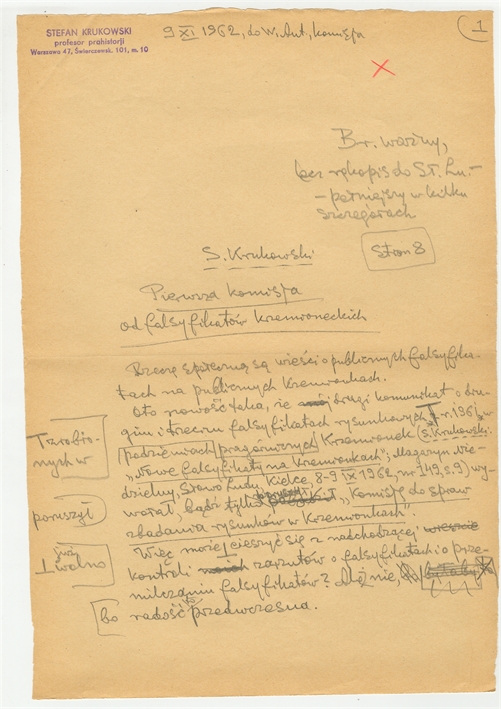 STEFAN KRUKOWSKI
profesor prahistorji
Warszawa 47, Świerczewsk. 101, m. 10
9 XI 1962, do W. Ant., komisja
1
Br. ważny,
bez rękopis do St. Lu. -
- pełniejszy w kilku
szczegółach
Stron 8
S. Krukowski
Pierwsza komisja
od falsyfikatów krzemioneckich
Rzeczą społeczną są wieści o publicznych falsyfika-
tach na publicznych Krzemionkach.
Oto nowość taka, że drugi komunikat o dru-
gim i trzecim falsyfikatach rysunkowych z r. 1961, w
podziemiach pragórniczych Krzemionek (S. Krukowski:
"Nowe falsyfikaty na Krzemionkach"; Magazyn Nie-
dzielny, Słowo Ludu, Kielce, 8-9 IX 1962, nr 149, s. 9) wy-
wołał, bądź tylko poruszył "Komisję do spraw
zbadania rysunków w Krzemionkach".
Więc możej cieszyć się z nadchodzącej
kontroli zarzutów o falsyfikatach i o prze-
milczaniu falsyfikatów? Otóż nie,
bo radość przedwczesna.
poruszył
już
wolno